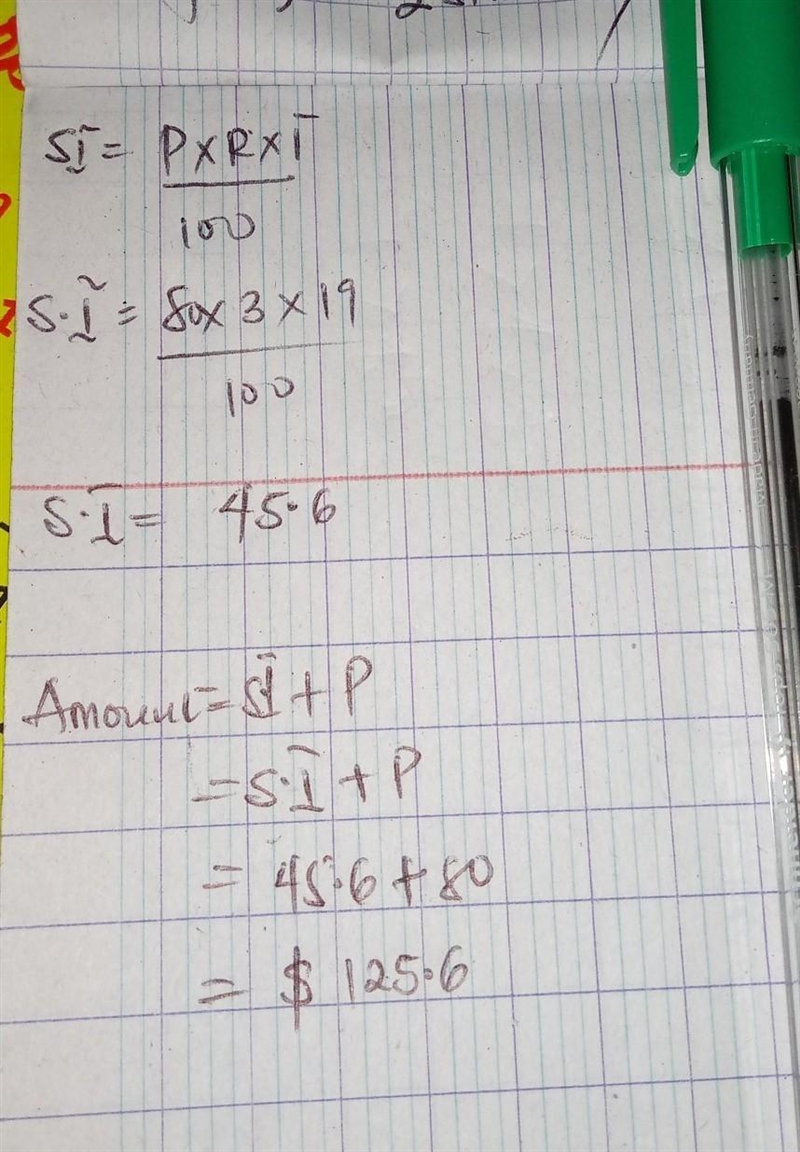 SI = P x R x T
100
S.I = 80 x 3 x 19
100
S.I = 45.6
Amount = SI + P
= S.I + P
= 45.6 + 80
= $ 125.6